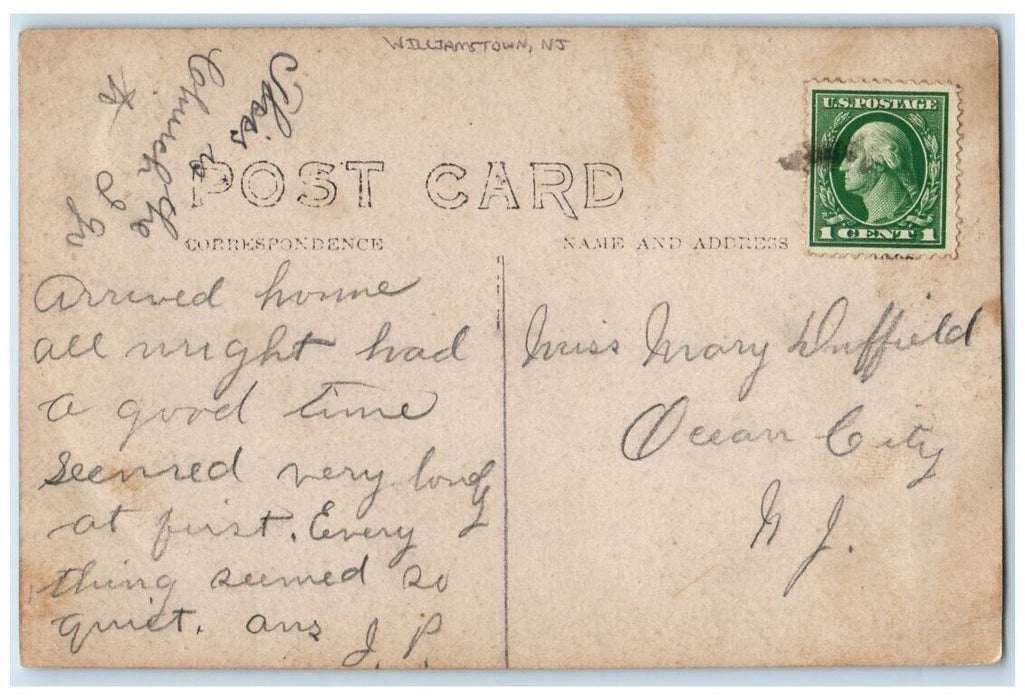 WILLIAMSTOWN, NJ
This is
Church
to go
to
POST CARD
CORRESPONDENCE
NAME AND ADDRESS
U.S. POSTAGE
1 CENT 1
Arrived home
all wright had
a good time
seemed very lonely
at first. Every
thing seemed so
quiet. ans J. P.
Miss Mary Duffield
Ocean City
N J.